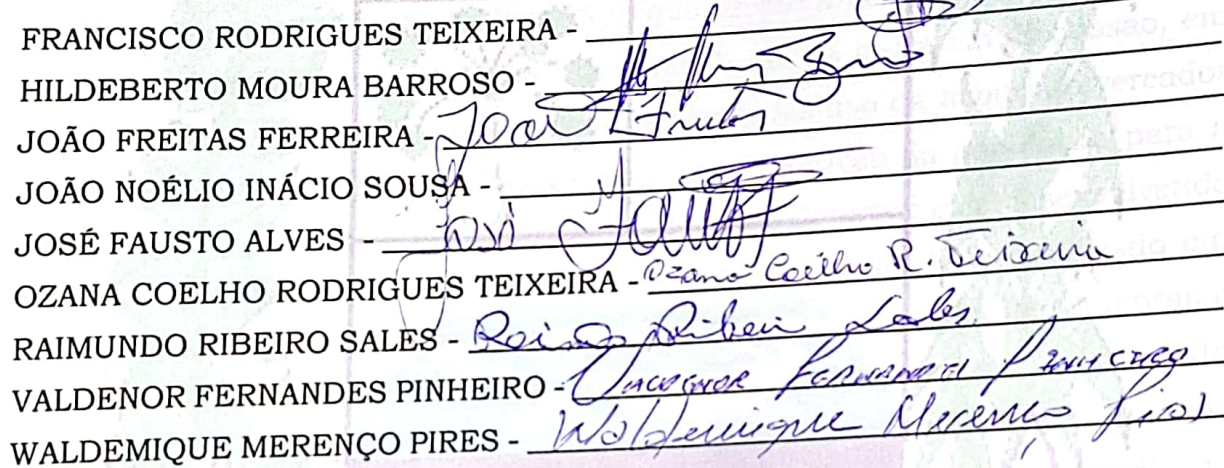 FRANCISCO RODRIGUES TEIXEIRA -
HILDEBERTO MOURA BARROSO -
JOÃO FREITAS FERREIRA - João Freitas
JOÃO NOÉLIO INÁCIO SOUSA -
JOSÉ FAUSTO ALVES - José Fausto
OZANA COELHO RODRIGUES TEIXEIRA - Ozana Coêlho R. Teixeira
RAIMUNDO RIBEIRO SALES - Ribeiro Sales
VALDENOR FERNANDES PINHEIRO - Valdenor Fernandes Pinheiro
WALDEMIQUE MERENÇO PIRES - Waldemique Merenço Pires